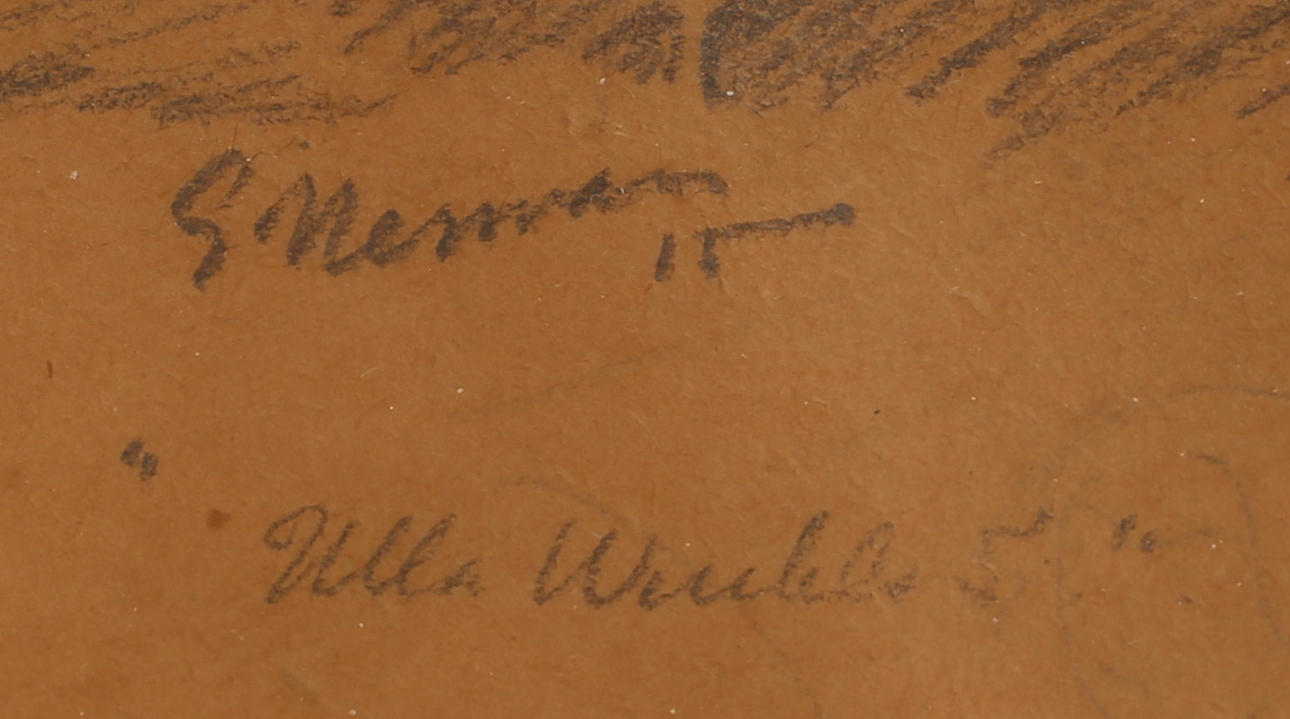 E Nerman
15
"Ulla Winblad 5"